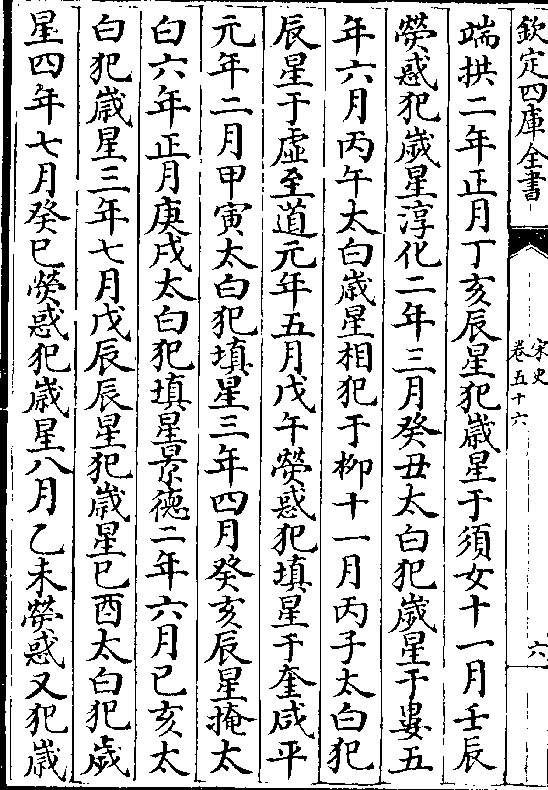 欽定四庫全書
宋史
卷五十六
六
端拱二年正月丁亥辰星犯歳星于須女十一月壬辰
熒惑犯歳星淳化二年三月癸丑太白犯歳星于婁五
年六月丙午太白歳星相犯于栁十一月丙子太白犯
辰星于虚至道元年五月戊午熒惑犯填星于奎咸平
元年二月甲寅太白犯填星三年四月癸亥辰星掩太
白六年正月庚戌太白犯填星景徳二年六月已亥太
白犯歳星三年七月戊辰辰星犯歳星已酉太白犯歳
星四年七月癸巳熒惑犯歳星八月乙未熒惑又犯歳